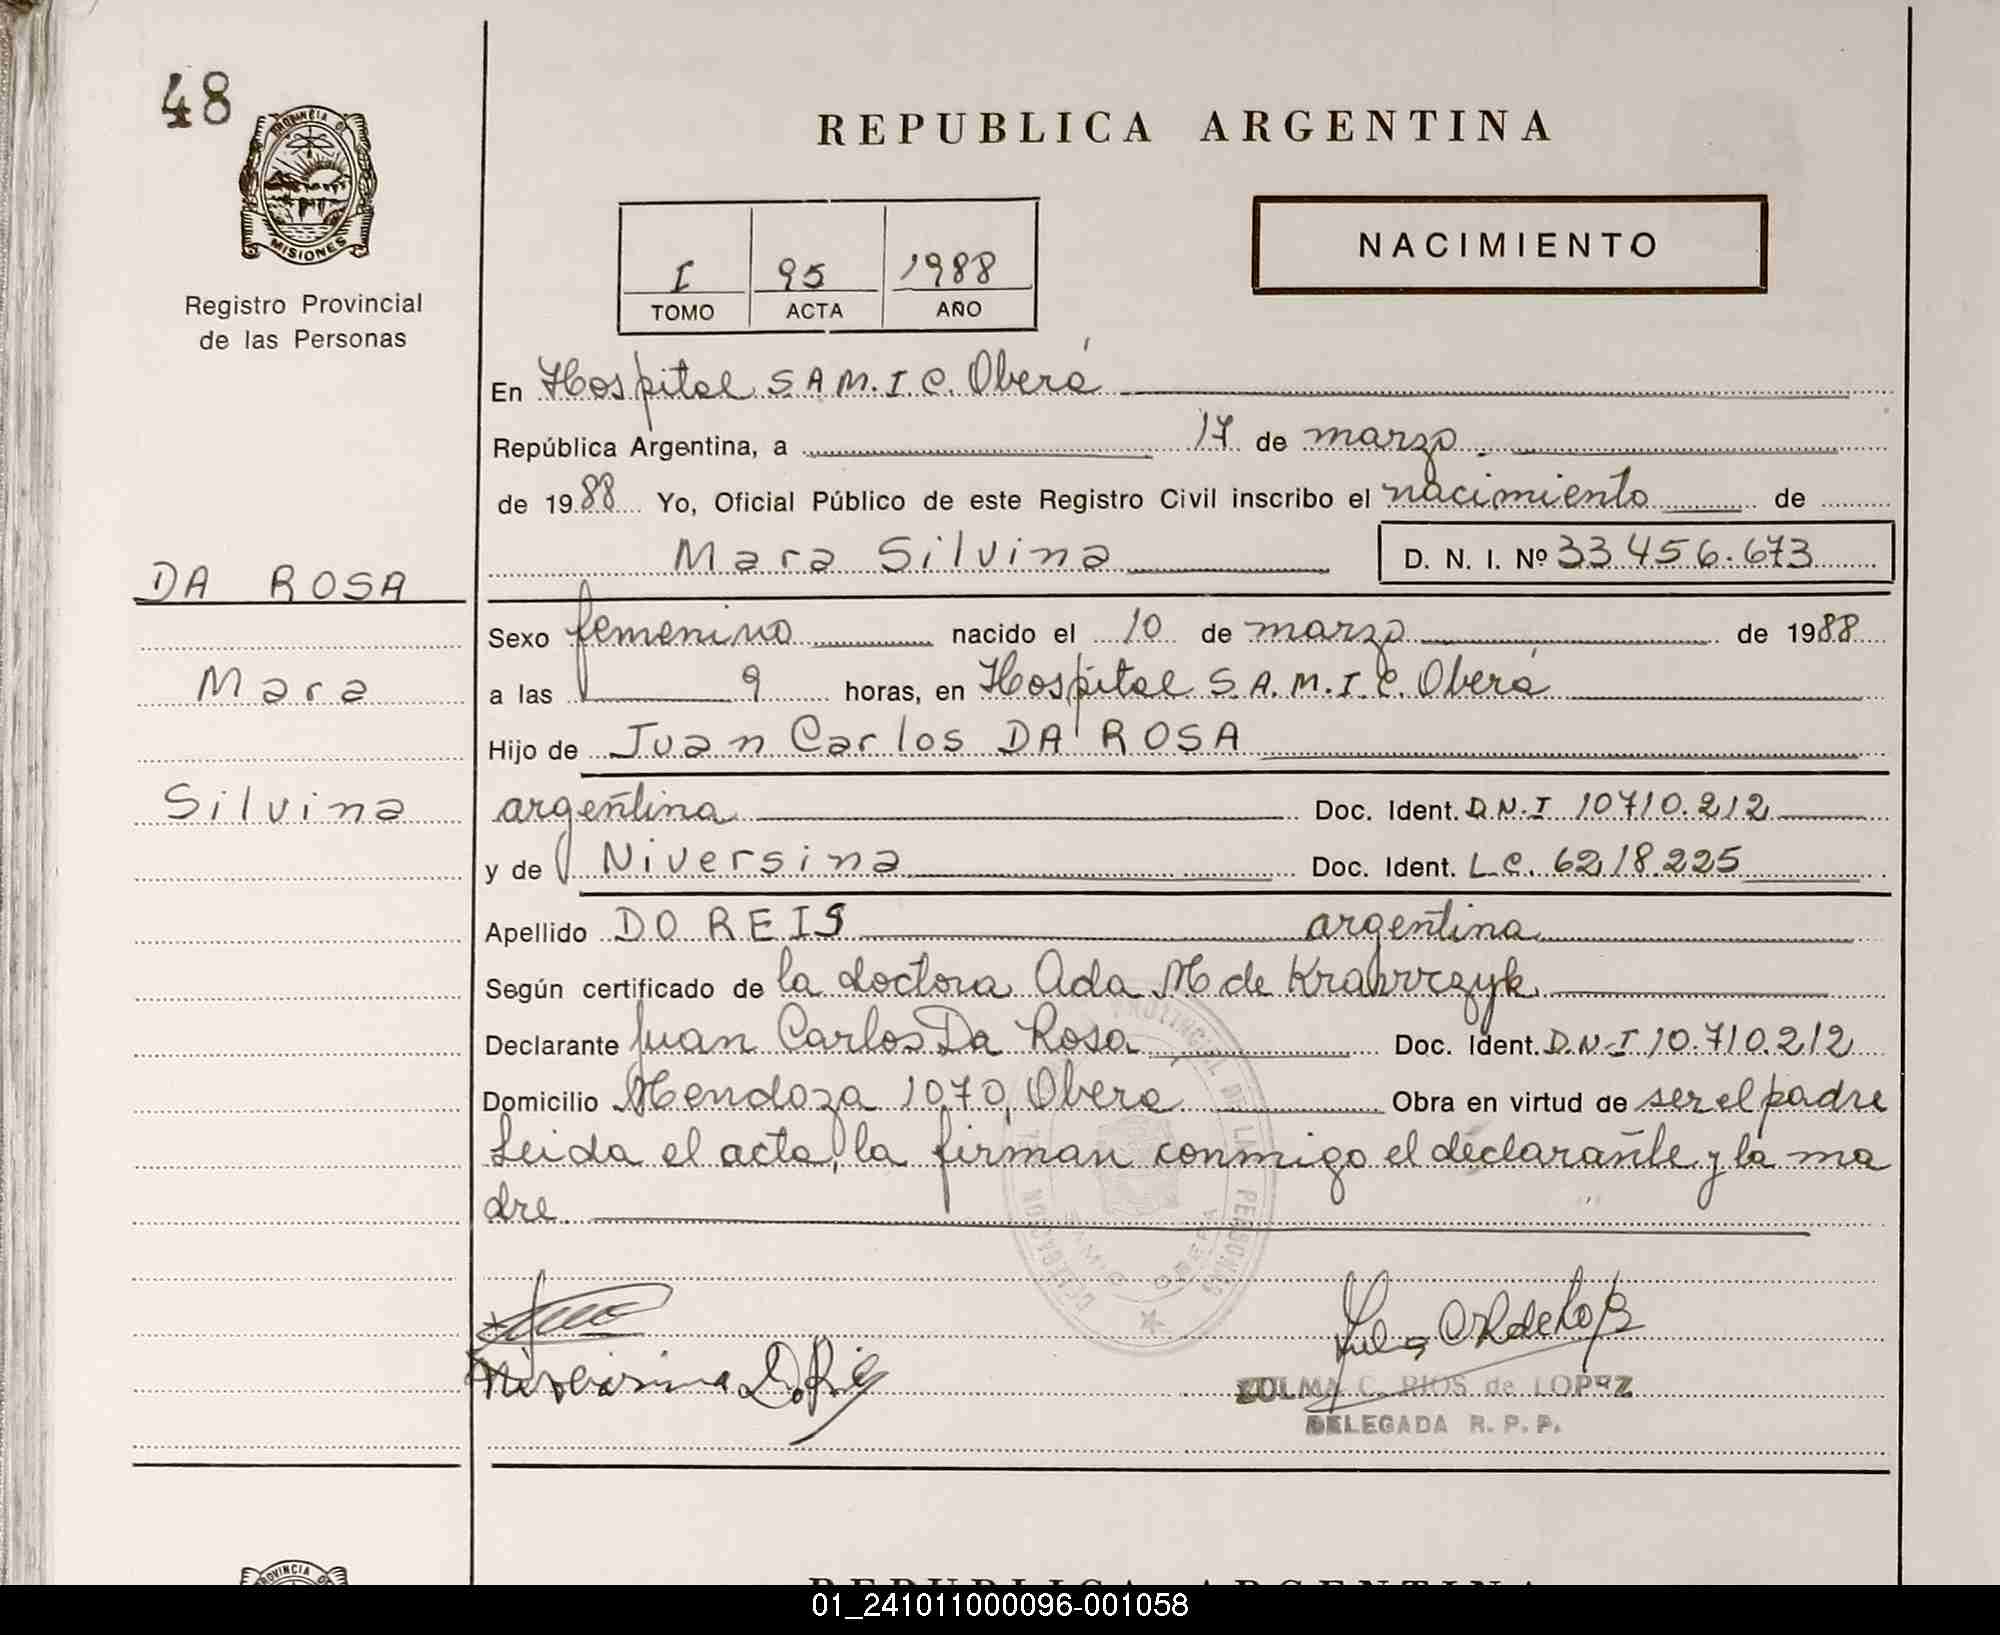 48
PROVINCIA DE
MISIONES
Registro Provincial
de las Personas
REPUBLICA ARGENTINA
I 95 1988
TOMO ACTA AÑO
NACIMIENTO
En Hospital S.A.M.I.C. Oberá
República Argentina, a 17 de marzo
de 1988 Yo, Oficial Público de este Registro Civil inscribo el nacimiento de
Mara Silvina D. N. I. Nº 33.456.673
DA ROSA
Sexo femenino nacido el 10 de marzo de 1988
Mara
a las 9 horas, en Hospital S.A.M.I.C. Oberá
Hijo de Juan Carlos DA ROSA
Silvina
argentina Doc. Ident. D.N.I 10710.212
y de Niversina Doc. Ident. L.C. 6218.225
Apellido DO REIS argentina
Según certificado de la doctora Ada M de Krawczyk
Declarante Juan Carlos Da Rosa Doc. Ident. D.N.I 10.710.212
Domicilio Mendoza 1070, Oberá Obra en virtud de ser el padre
Leida el acta, la firman conmigo el declarante y la ma
dre
DELEGACION PROVINCIAL DE LAS PERSONAS
SAMIC OBERA
ZULMA C. RIOS de LOPEZ
DELEGADA R. P. P.
PROVINCIA DE
REPUBLICA ARGENTINA
01_241011000096-001058